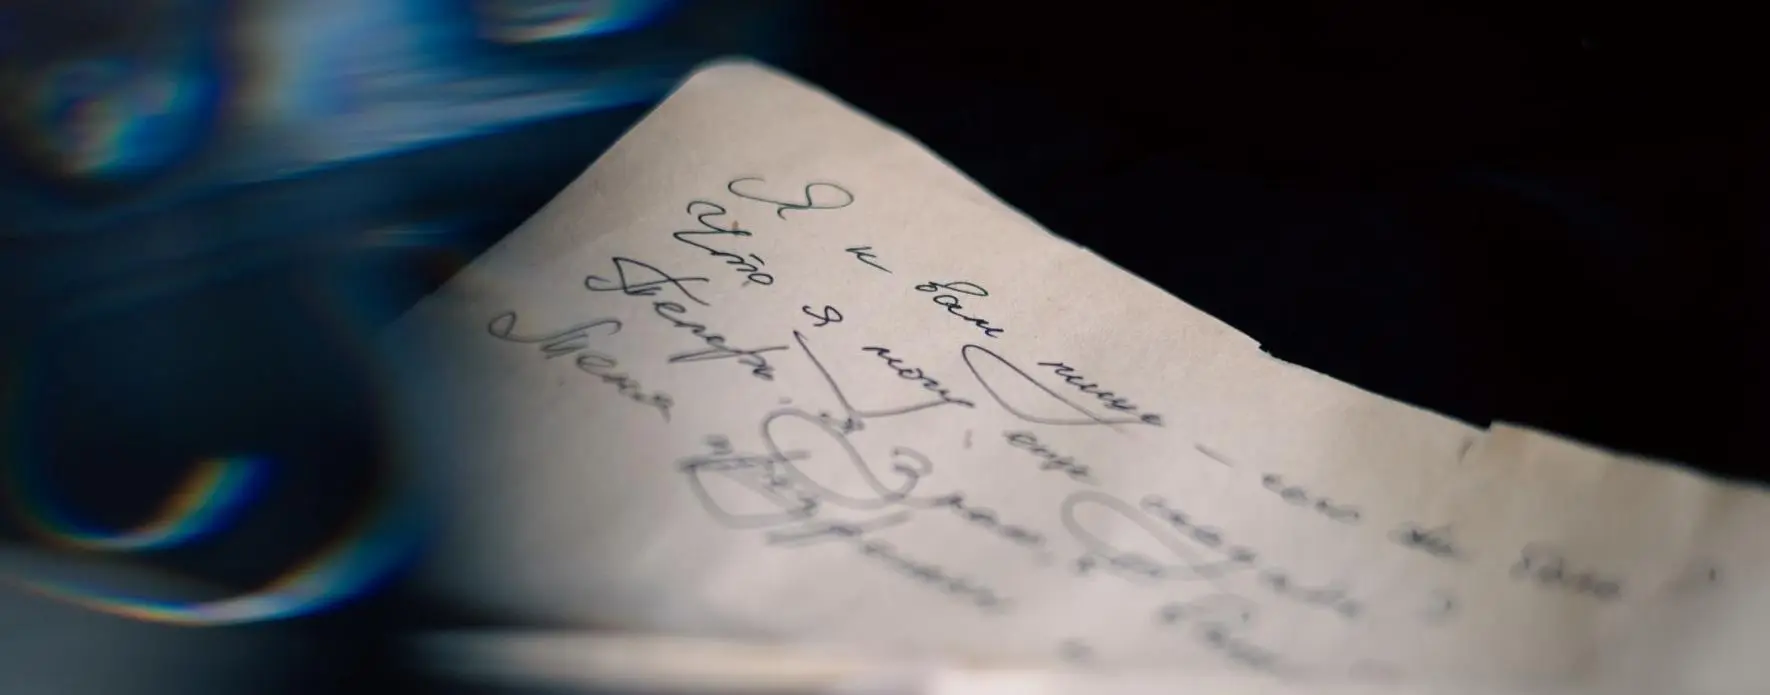 Я к вам пишу – чего же боле ?
Что я могу еще сказать ?
Теперь я знаю, в
Меня презреньем